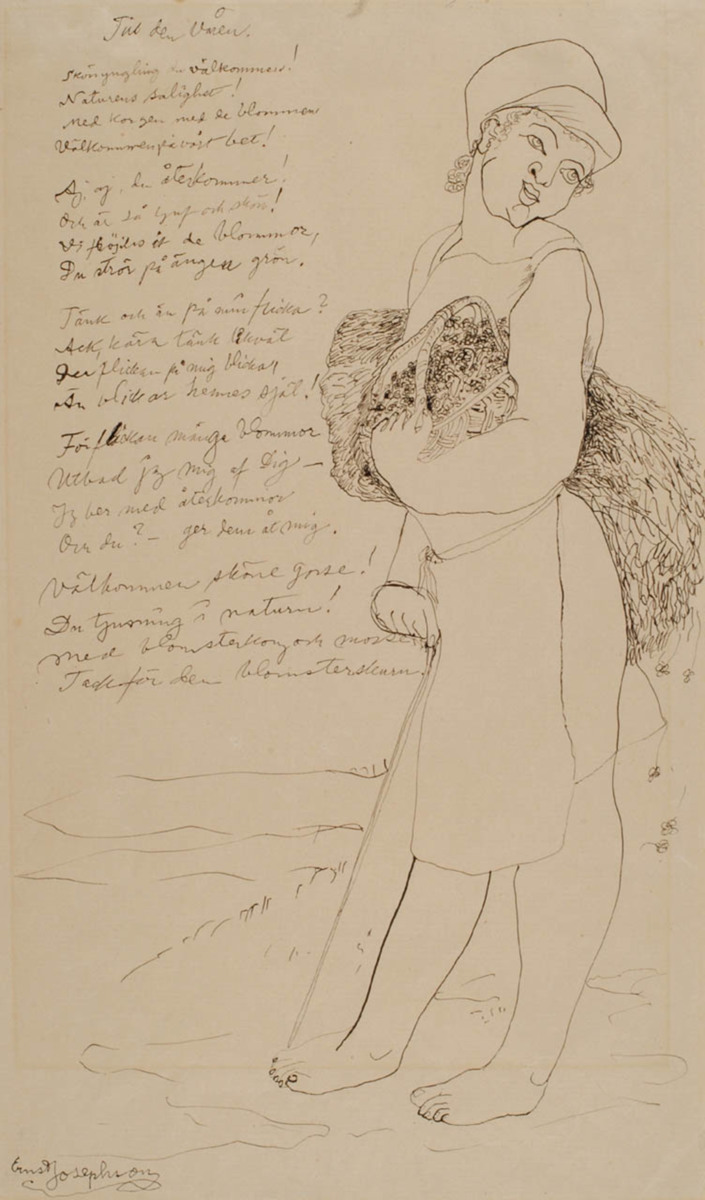 Till den Våren.
Skön yngling du välkommen!
Naturens salighet!
Med korgen med de blommen
Välkommen på vårt bet!
Aj, aj, du återkommer!
Och är så ljuf och skön!
Vi fröjdas åt de blommor,
Du strör på ängen grön.
Tänk och än på min flicka?
Ack, kära tänk
Der flickan på mig blickar
Än blickar hennes själ!
För flickan många blommor
Utbad jag mig af Dig —
Jag ber med återkommor
Och du? — ger dem åt mig.
Välkommen sköne gosse!
Du tjusning i naturn!
Med blomsterkorg och mosse
Tack för den blomsterskurn.
Ernst Josephson